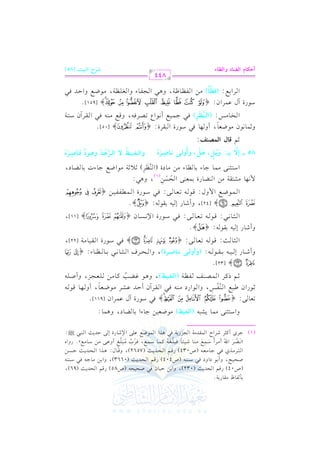 أحكام الضاد والظاء
شرح البيت [٥٨]
٤٤٨
الرابع: (فظًّا) من الفظاظة، وهي الجفاء والغلظة، موضع واحد في
سورة آل عمران: ﴿وَلَوْ كُنْتَ فَظًّا غَلِيظَ الْقَلْبِ لَانْفَضُّوا مِنْ حَوْلِكَ﴾ [١٥٩].
الخامس: (النظر) في جميع أنواع تصرفه، وقع منه في القرآن ستة
وثمانون موضعاً، أولها في سورة البقرة: ﴿وَأَنْتُمْ تَنْظُرُونَ﴾ [٥٠].
ثم قال المصنف:
٥٨ - إلا بـ
واستثنى مما جاء بالظاء من مادة (النظر) ثلاثة مواضع جاءت بالضاد،
لأنها مشتقة من النضارة بمعنى الحسن(١)، وهي:
الموضع الأول: قوله تعالى: في سورة المطففين ﴿تَعْرِفُ فِي وُجُوهِهِمْ
نَضْرَةَ النَّعِيمِ﴾ [٢٤]، وأشار إليه بقوله: ﴿وَيْلٌ﴾.
الثاني: قوله تعالى: في سورة الإنسان ﴿وَلَقَّاهُمْ نَضْرَةً وَسُرُورًا﴾ [١١]،
وأشار إليه بقوله: ﴿هَلْ﴾.
الثالث: قوله تعالى: ﴿وُجُوهٌ يَوْمَئِذٍ نَاضِرَةٌ﴾ في سورة القيامة [٢٢]،
وأشار إليه بقوله: (وأولى ناضرة)، والحرف الثاني بالظاء: ﴿إِلَى رَبِّهَا
نَاظِرَةٌ﴾ [٢٣].
ثم ذكر المصنف لفظة (الغيظ)، وهو غضب كامن للعجز، وأصله
ثوران طبع النفس، والوارد منه في القرآن أحد عشر موضعاً، أولها قوله
تعالى: ﴿عَضُّوا عَلَيْكُمُ الْأَنَامِلَ مِنَ الْغَيْظِ﴾ في سورة آل عمران [١١٩].
واستثنى مما يشبه (الغيظ) موضعين جاءا بالضاد، وهما:
(١) جرى أكثر شراح المقدمة الجزرية في هذا الموضع على الإشارة إلى حديث النبي ﷺ:
نضر الله امرأً سمع منا شيئاً فبلغه كما سمع، فرب مبلغ أوعى من سامع). رواه
الترمذي في جامعه (ص٤٣٠) رقم الحديث (٢٦٥٧)، وقال: هذا الحديث حسن
صحيح، وأبو داود في سننه (ص٤٠٤) رقم الحديث (٣٦٦٠)، وابن ماجه في سننه
(ص٤٠) رقم الحديث (٢٣٠)، وابن حبان في صحيحه (ص٥٨) رقم الحديث (٦٩)،
بألفاظ مقاربة.